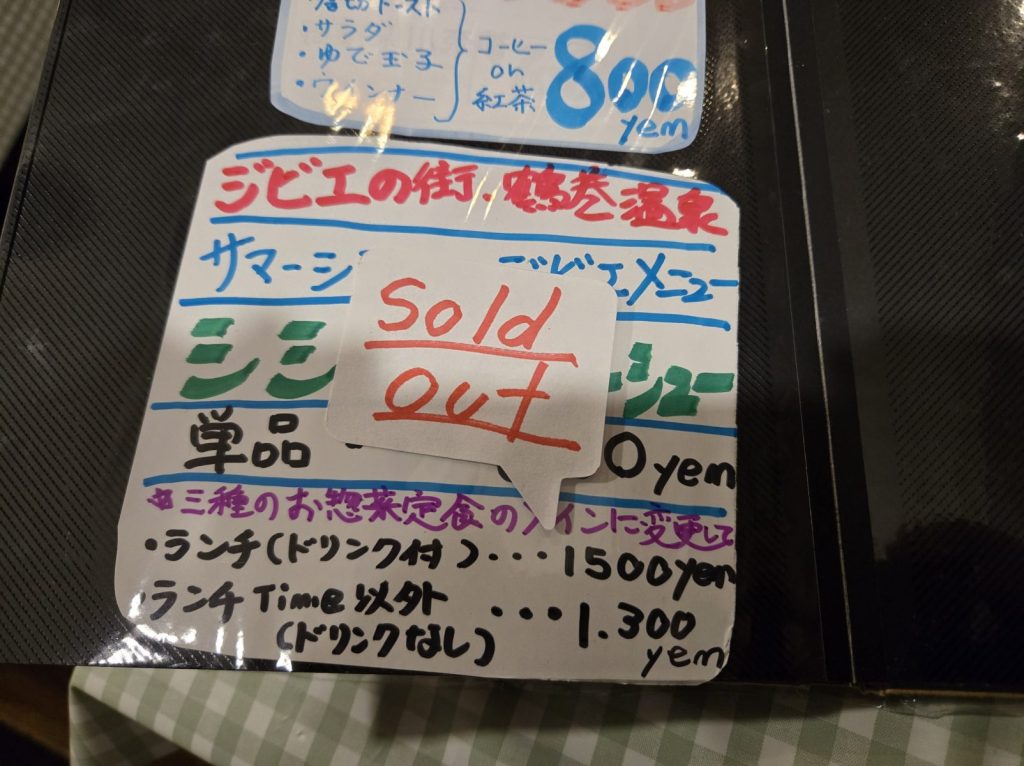 ・サラダ
・ゆで玉子
・ウインナー
コーヒー
or
紅茶
800
yem
ジビエの街.鶴巻温泉
サマーシ
ジビエメニュー
シシ
シュー
単品
0yem
*三種のお惣菜定食のメインに変更して
・ランチ(ドリンク付)・・・1500yen
・ランチTime以外・・・1.300
(ドリンクなし)
yem
Sold
out